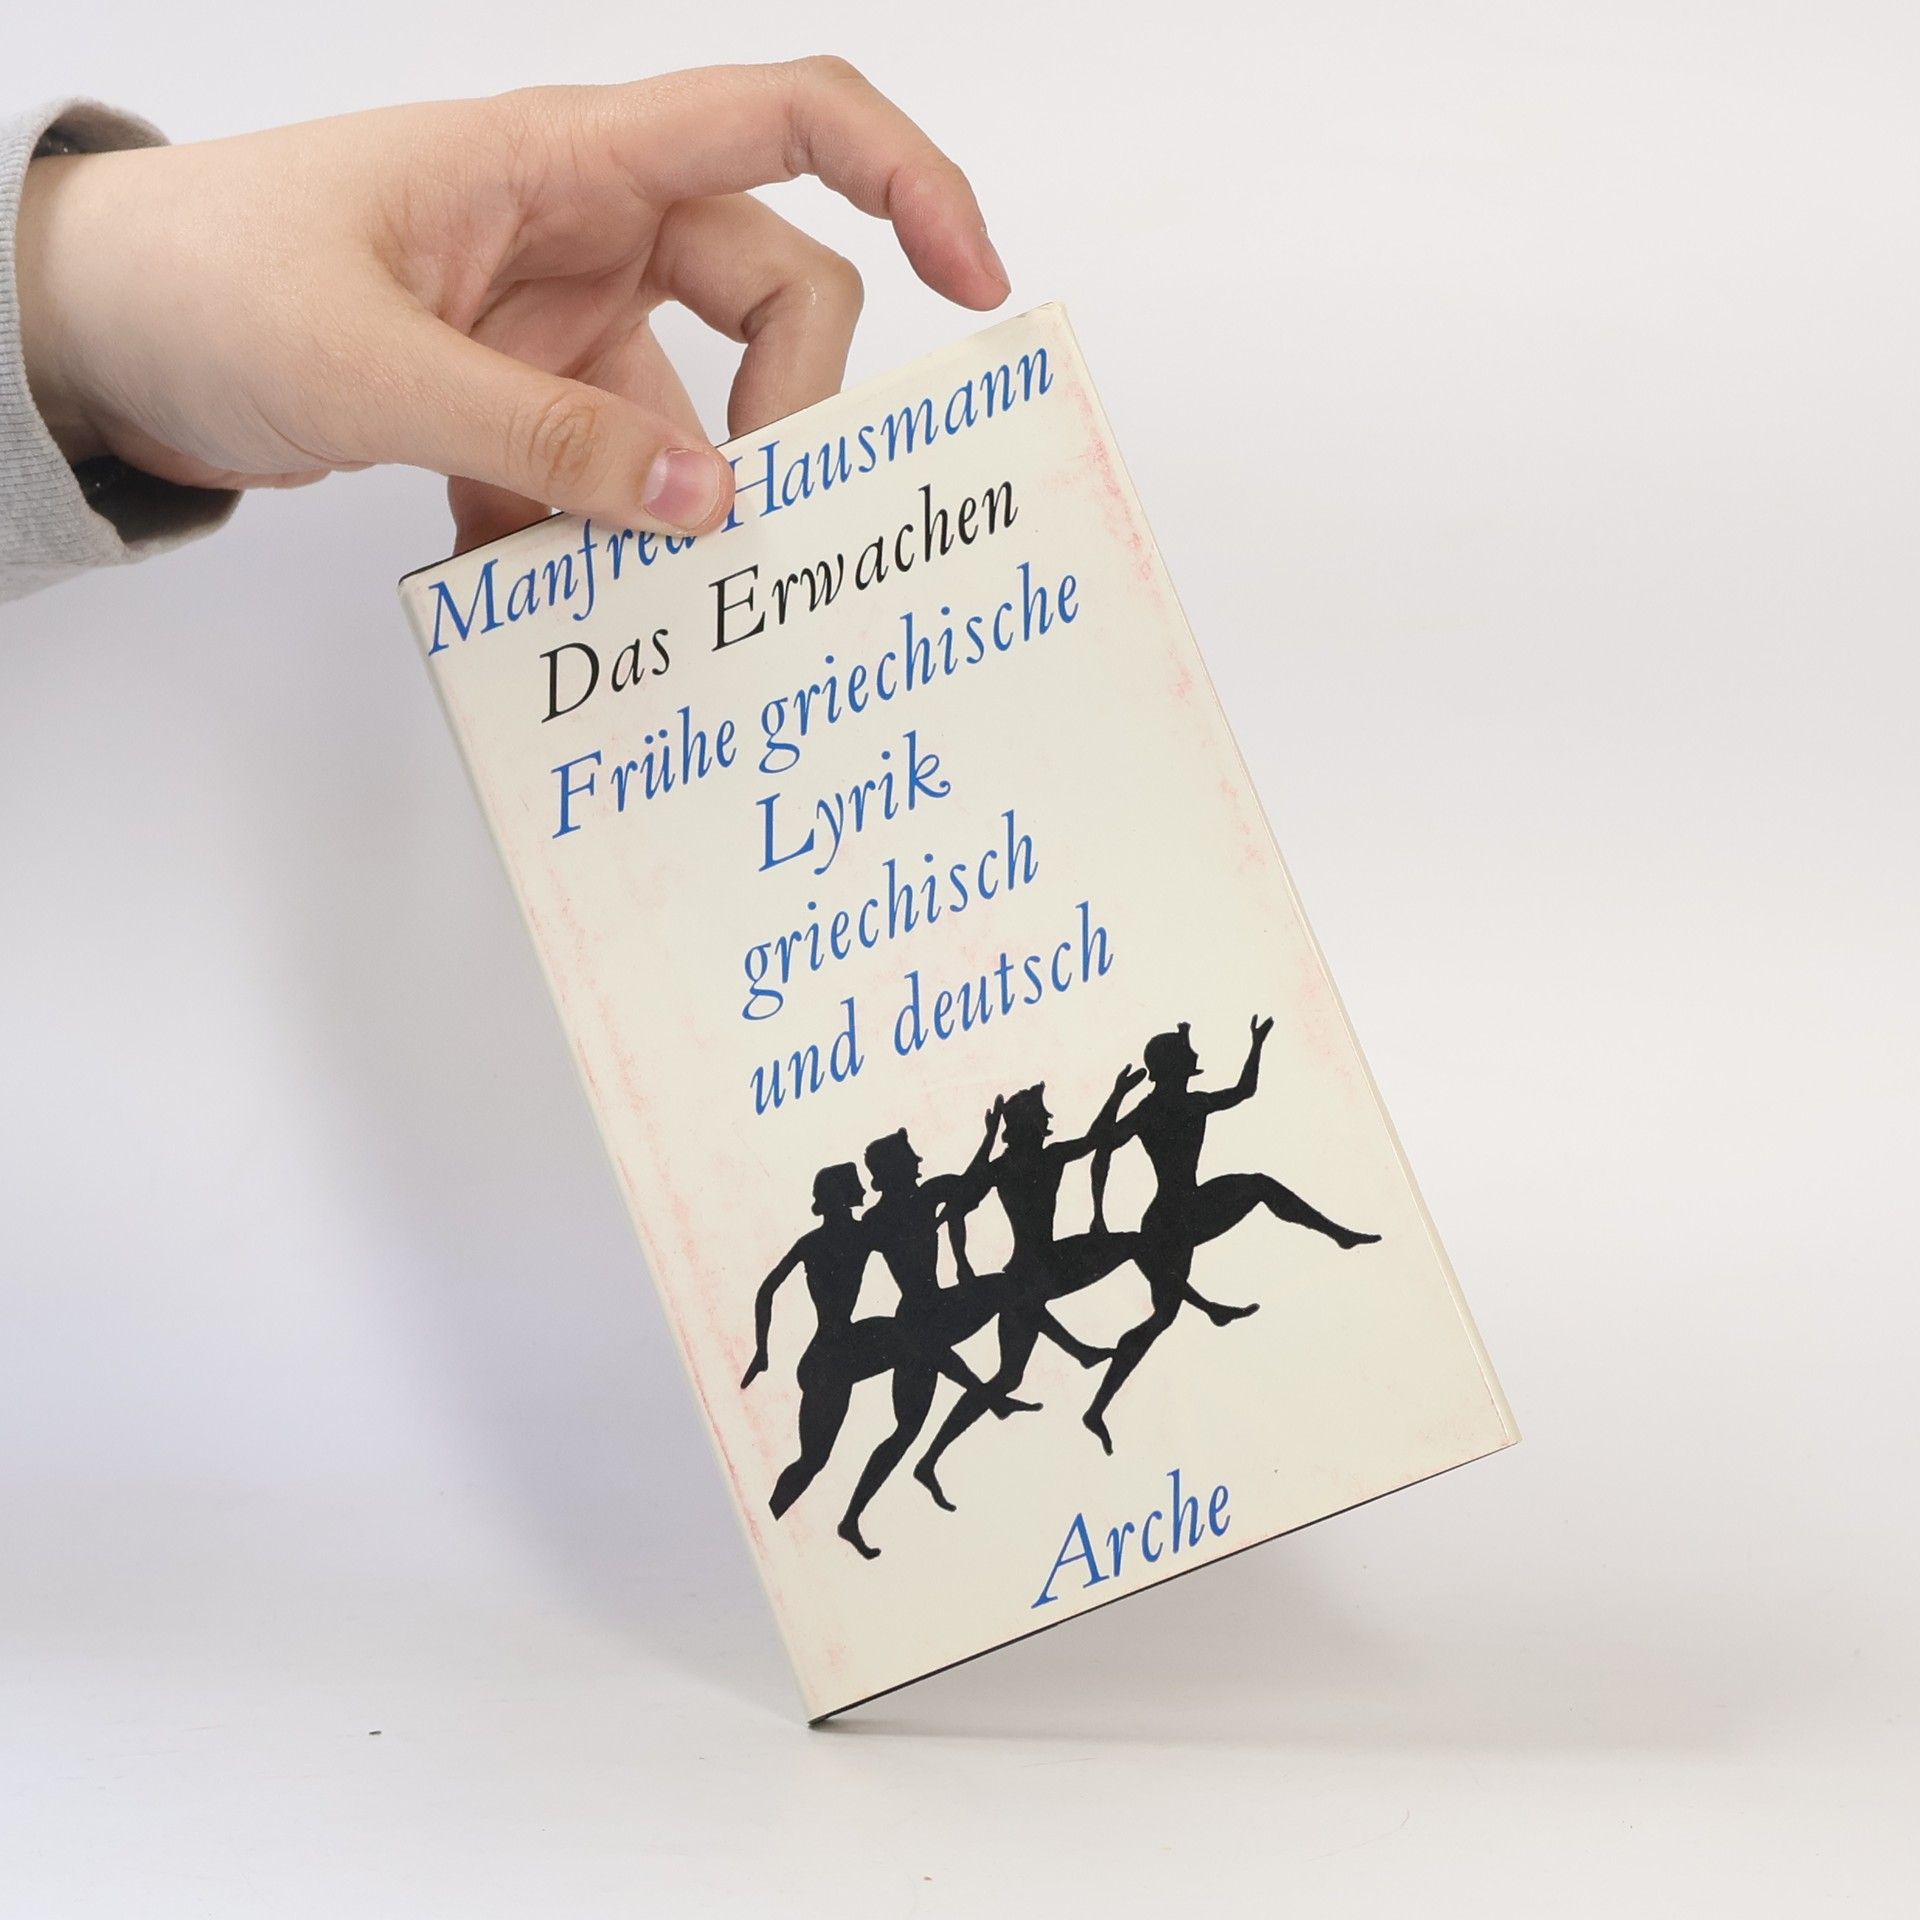 Manfred Hausmann
Das Erwachen
Frühe griechische
Lyrik
griechisch
und deutsch
Arche